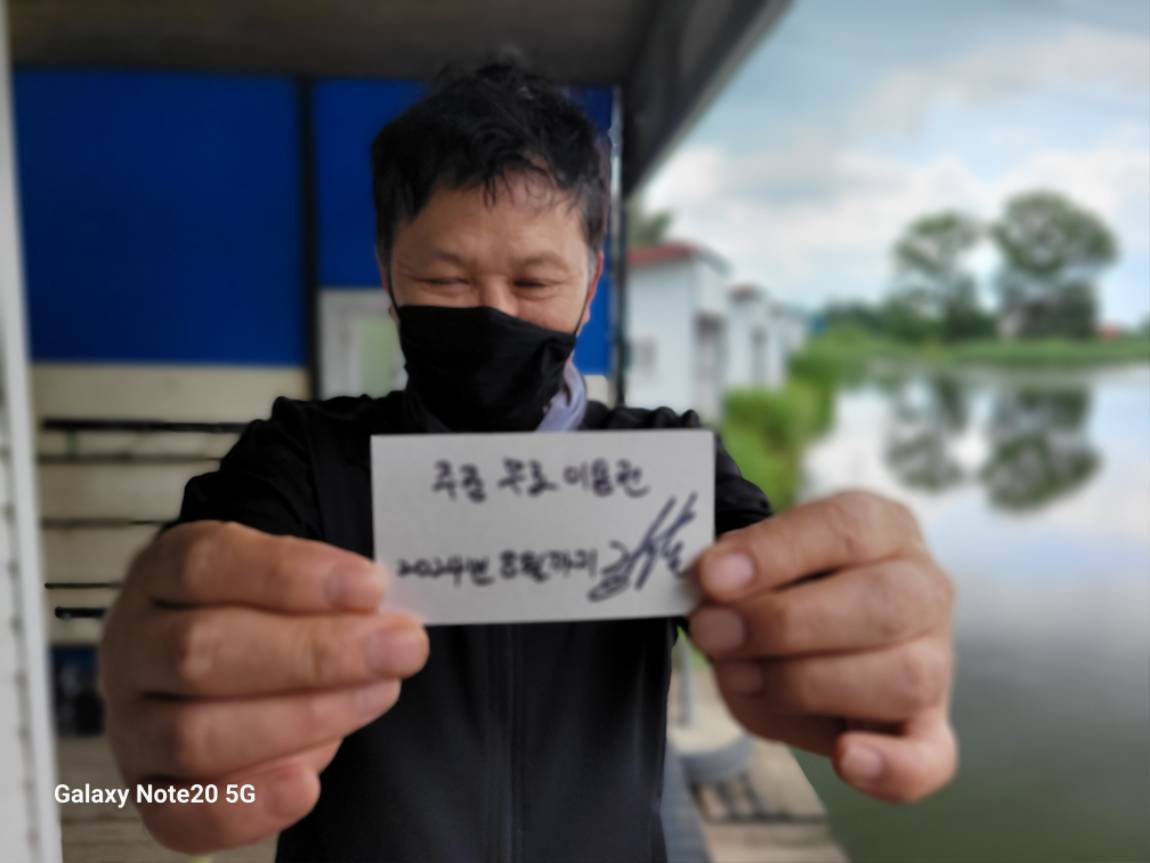 주중 무료 이용권
2024년 8월까지
Galaxy Note20 5G